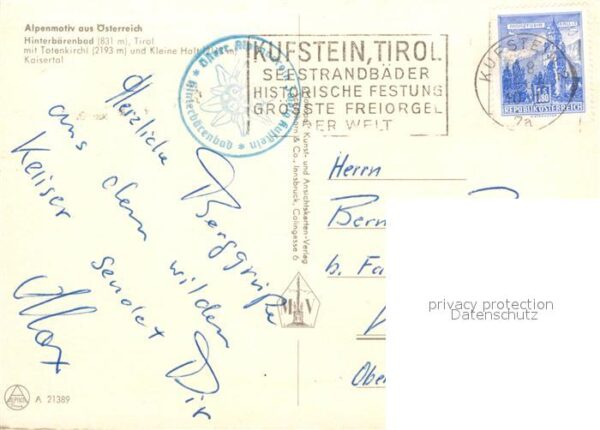 Alpenmotiv aus Österreich
Hinterbärenbad (831 m), Tirol
mit Totenkirchl (2193 m) und Kleine Halt
Kaisertal
Hinterbärenbad
KUFSTEIN, TIROL
SEESTRANDBÄDER
HISTORISCHE FESTUNG
GRÖSSTE FREIORGEL
DER WELT
KUFSTEIN 2
REPUBLIK ÖSTERREICH
Herzliche Berggrüße
aus dem wilden
Kaiser sendet Dir
Max
Kunst- und Ansichtskarten-Verlag
& Co., Innsbruck, Colingasse 6
M V
Herrn
Bern
b. Fa
Ober
privacy protection
Datenschutz
A 21389